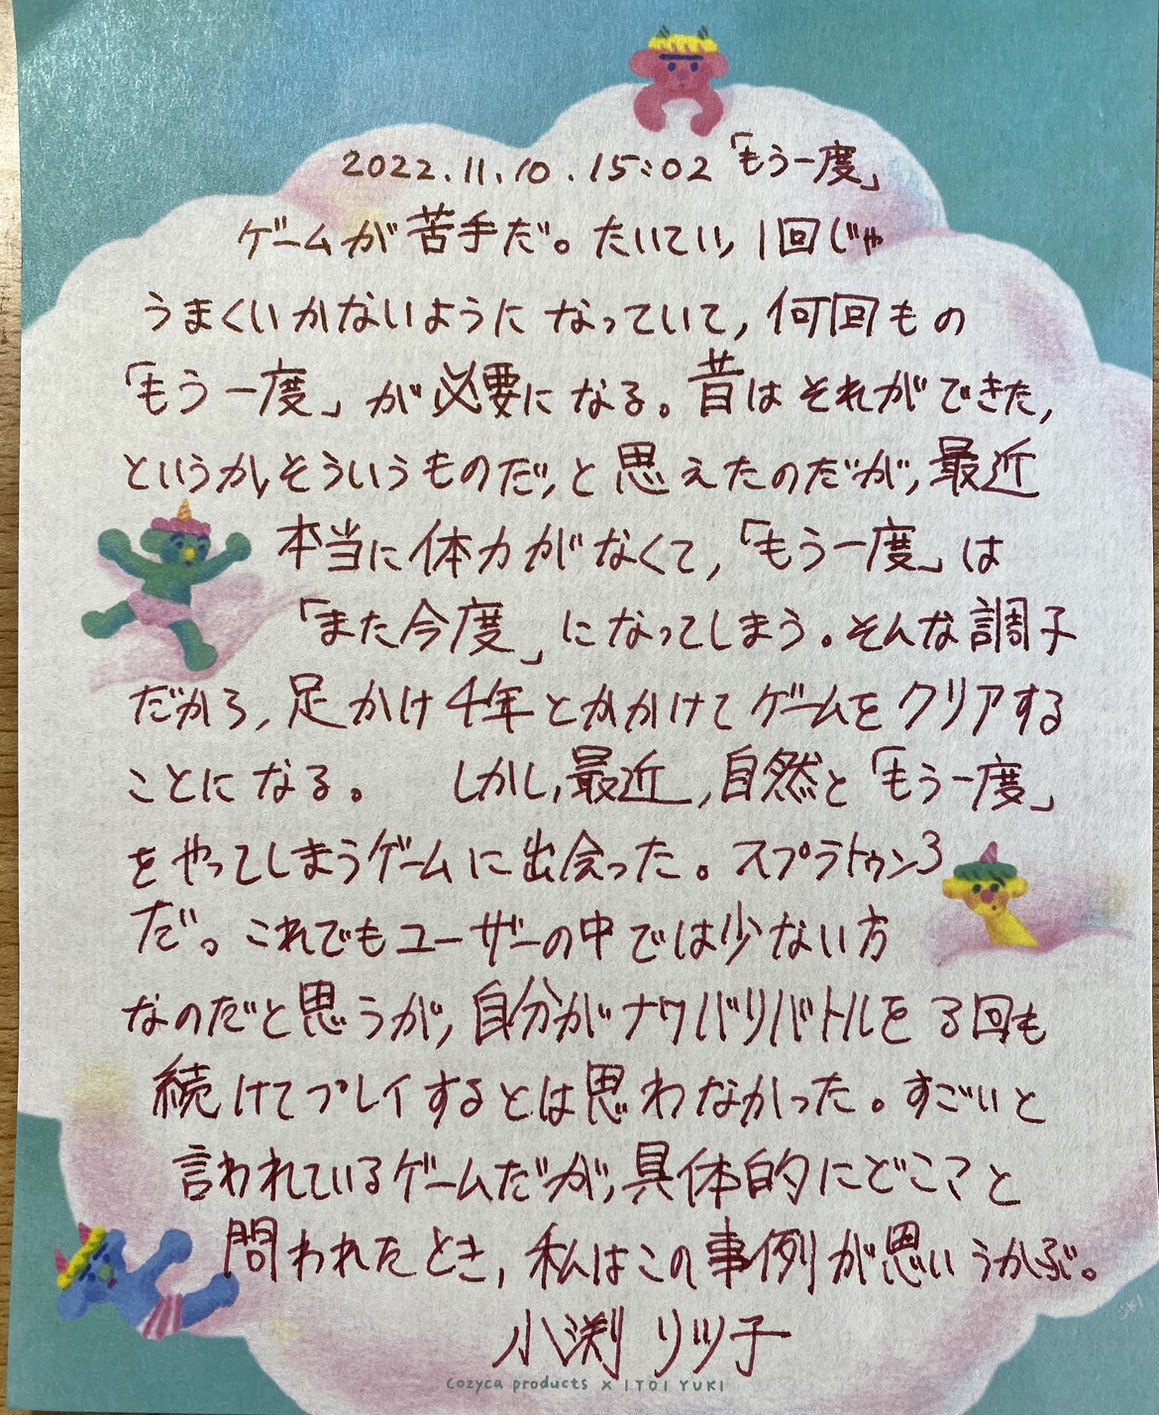 2022.11.10.15:02「もう一度」
ゲームが苦手だ。たいてい、1回じゃ
うまくいかないようになっていて、何回もの
「もう一度」が必要になる。昔はそれができた、
というか、そういうものだ、と思えたのだが、最近
本当に体力がなくて、「もう一度」は
「また今度」になってしまう。そんな調子
だから、足かけ4年とかかけてゲームをクリアする
ことになる。 しかし、最近、自然と「もう一度」
をやってしまうゲームに出会った。スプラトゥン3
だ。これでもユーザーの中では少ない方
なのだと思うが、自分がナワバリバトルを3回も
続けてプレイするとは思わなかった。すごいと
言われているゲームだが、具体的にどこ?と
問われたとき、私はこの事例が思いうかぶ。
小渕 リツ子
Cozyca products × ITOI YUKI